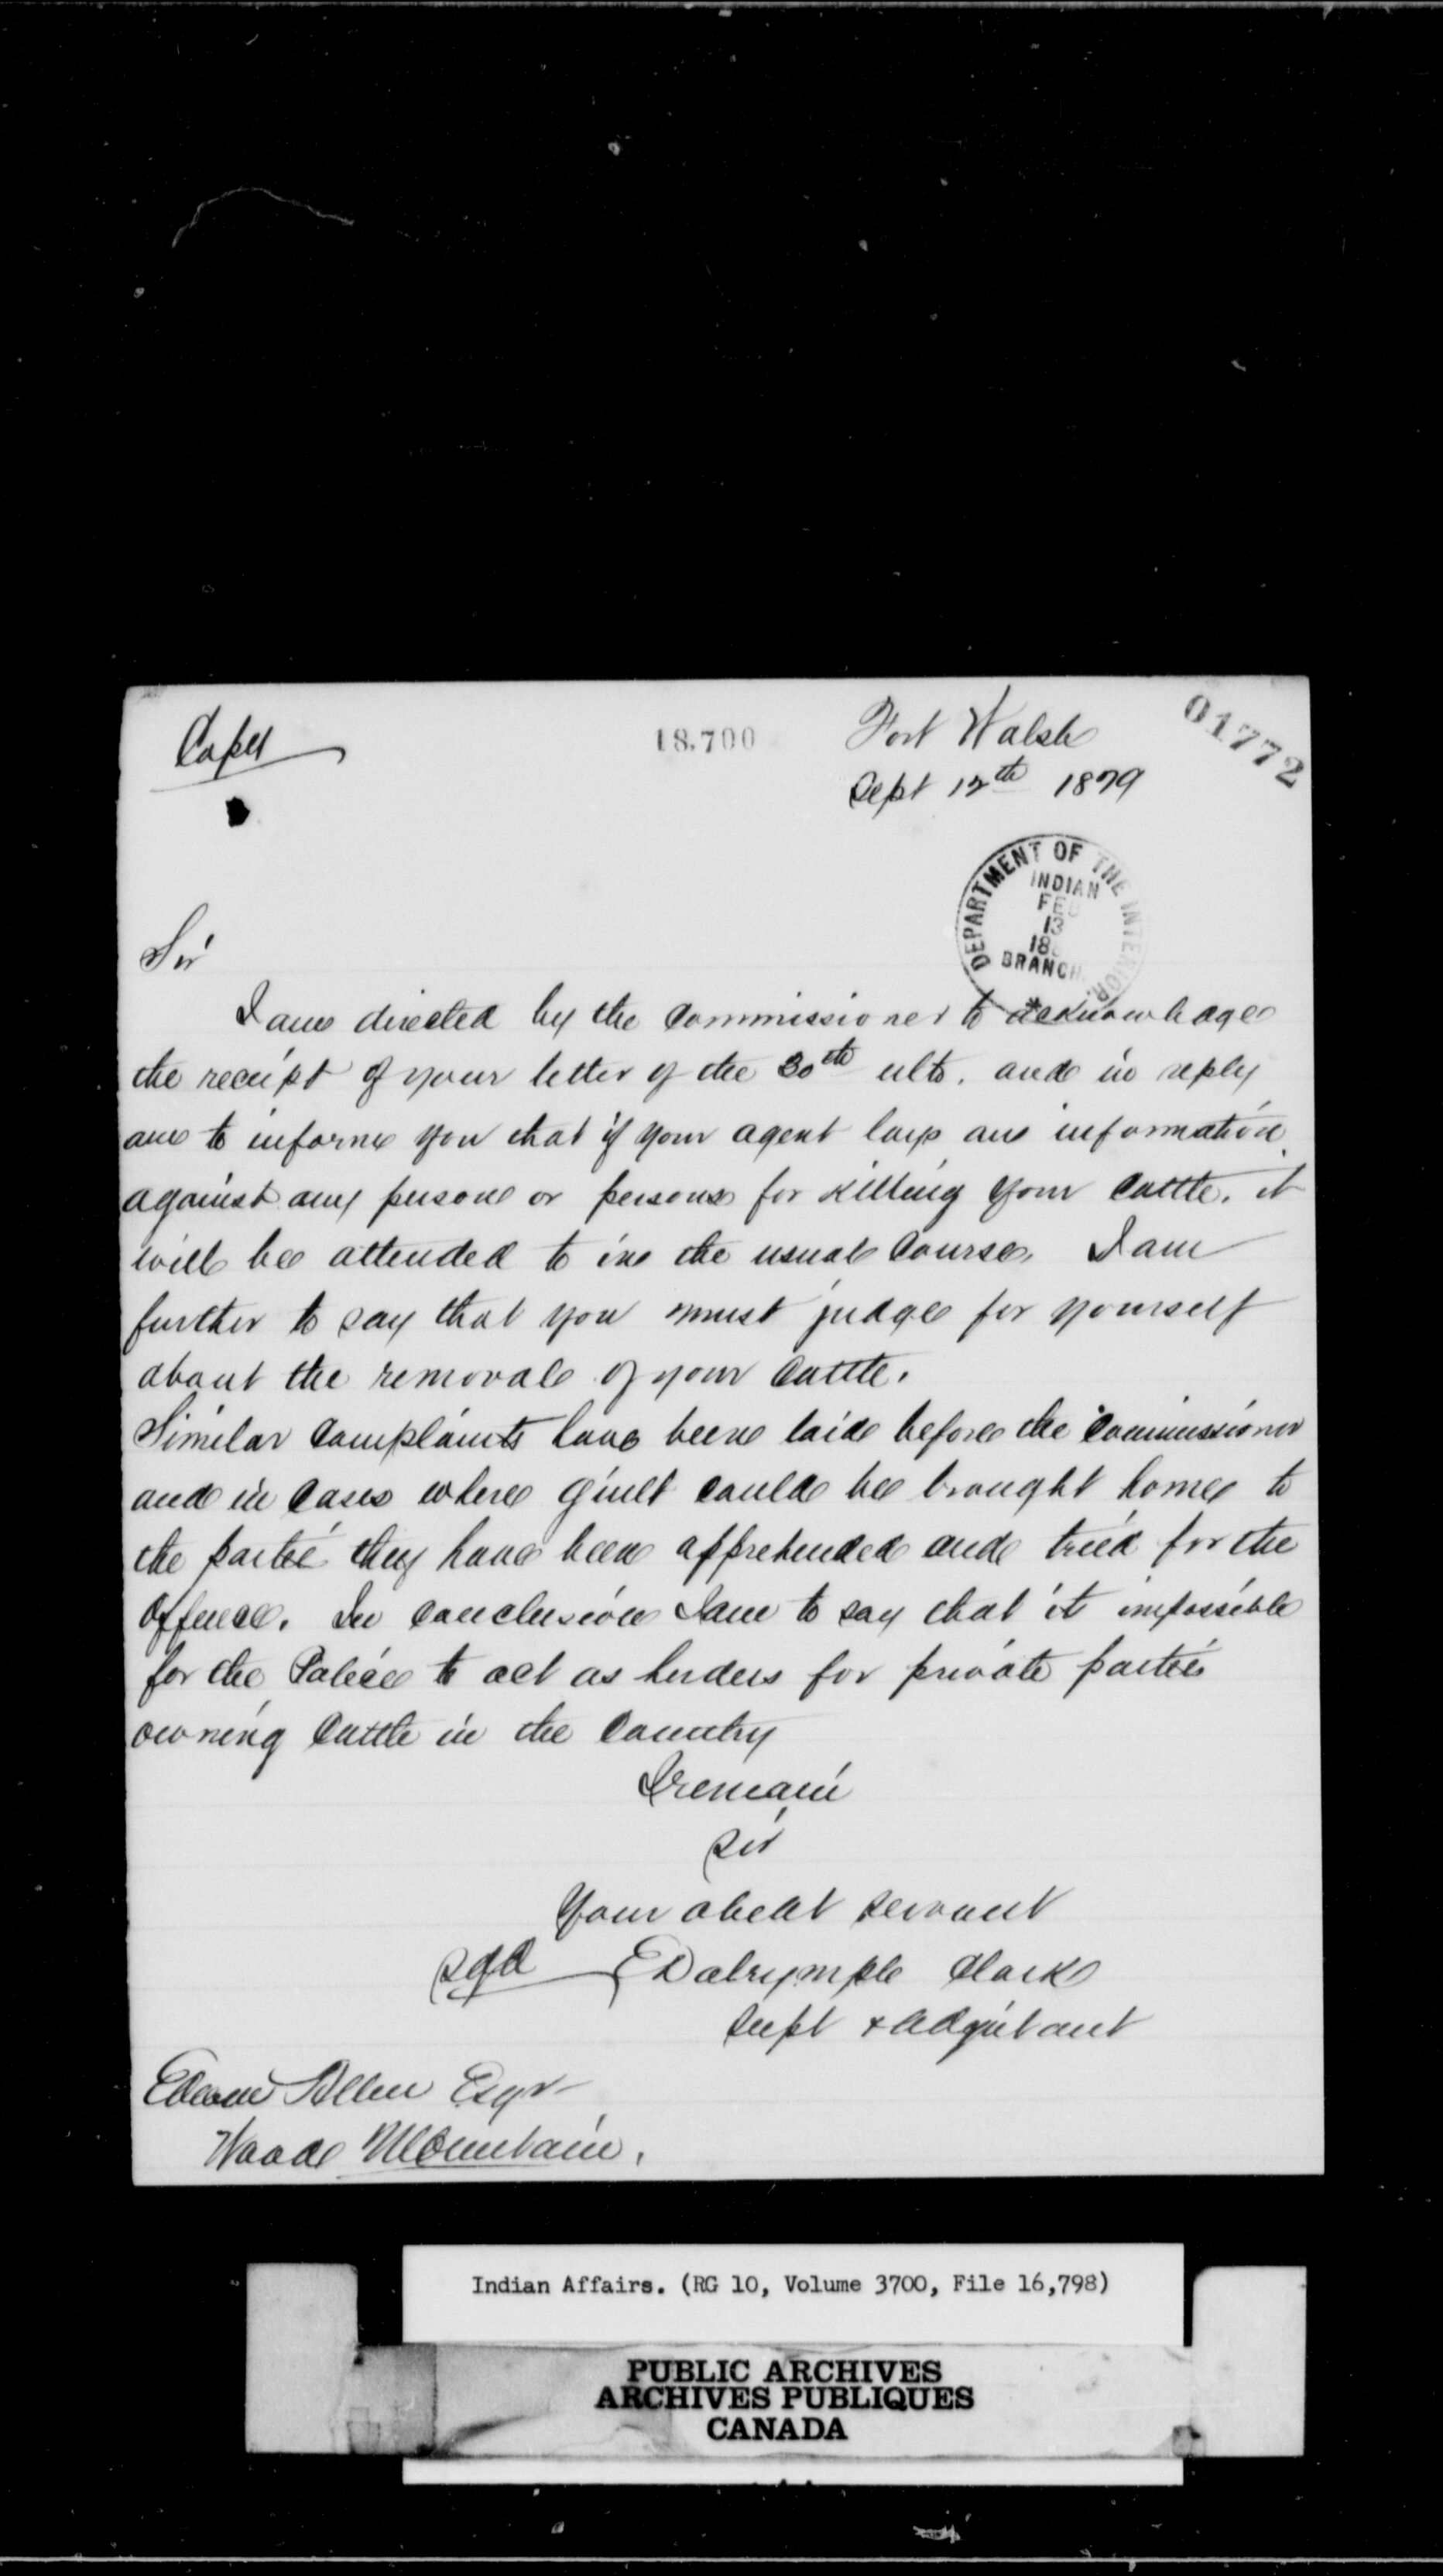 Copy
18,700
Fort Walsh
01772
Sept 12th 1879
DEPARTMENT OF THE INTERIOR.
INDIAN
FEB
13
18
BRANCH.
Sir
I am directed by the Commissioner to acknowledge
the receipt of your letter of the 30th ulto. and in reply
am to inform you that if your agent lays an information
against any person or persons for killing your cattle, it
will be attended to in the usual course. I am
further to say that you must judge for yourself
about the removal of your cattle.
Similar complaints have been laid before the Commissioner
and in cases where guilt could be brought home to
the partie they have been apprehended and tried for the
offence. In conclusion I am to say that it impossible
for the Police to act as herders for private parties
owning cattle in the country
I remain
Sir
Your obedt servant
sgd E Dalrymple Clark
Supt & Adjutant
Allen Esqr
Wood Mountain.
Indian Affairs. (RG 10, Volume 3700, File 16,798)
PUBLIC ARCHIVES
ARCHIVES PUBLIQUES
CANADA